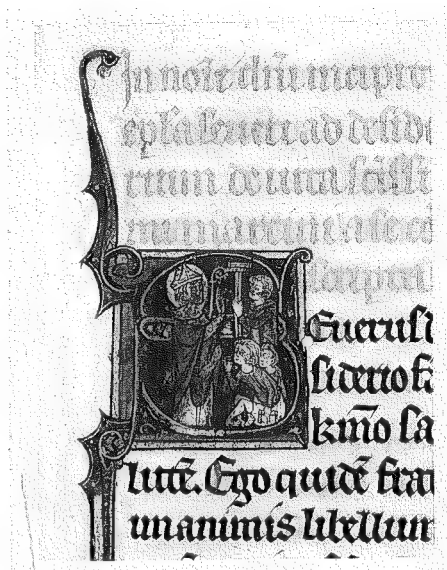 In noīe dn̄i incip
epl̄a seueri ad desid
rium de uita sc̄issi
mi martini a se
Seuerus d
siderio f
km̄o sa
lutē. Ego quidē frat
unanimis libellum